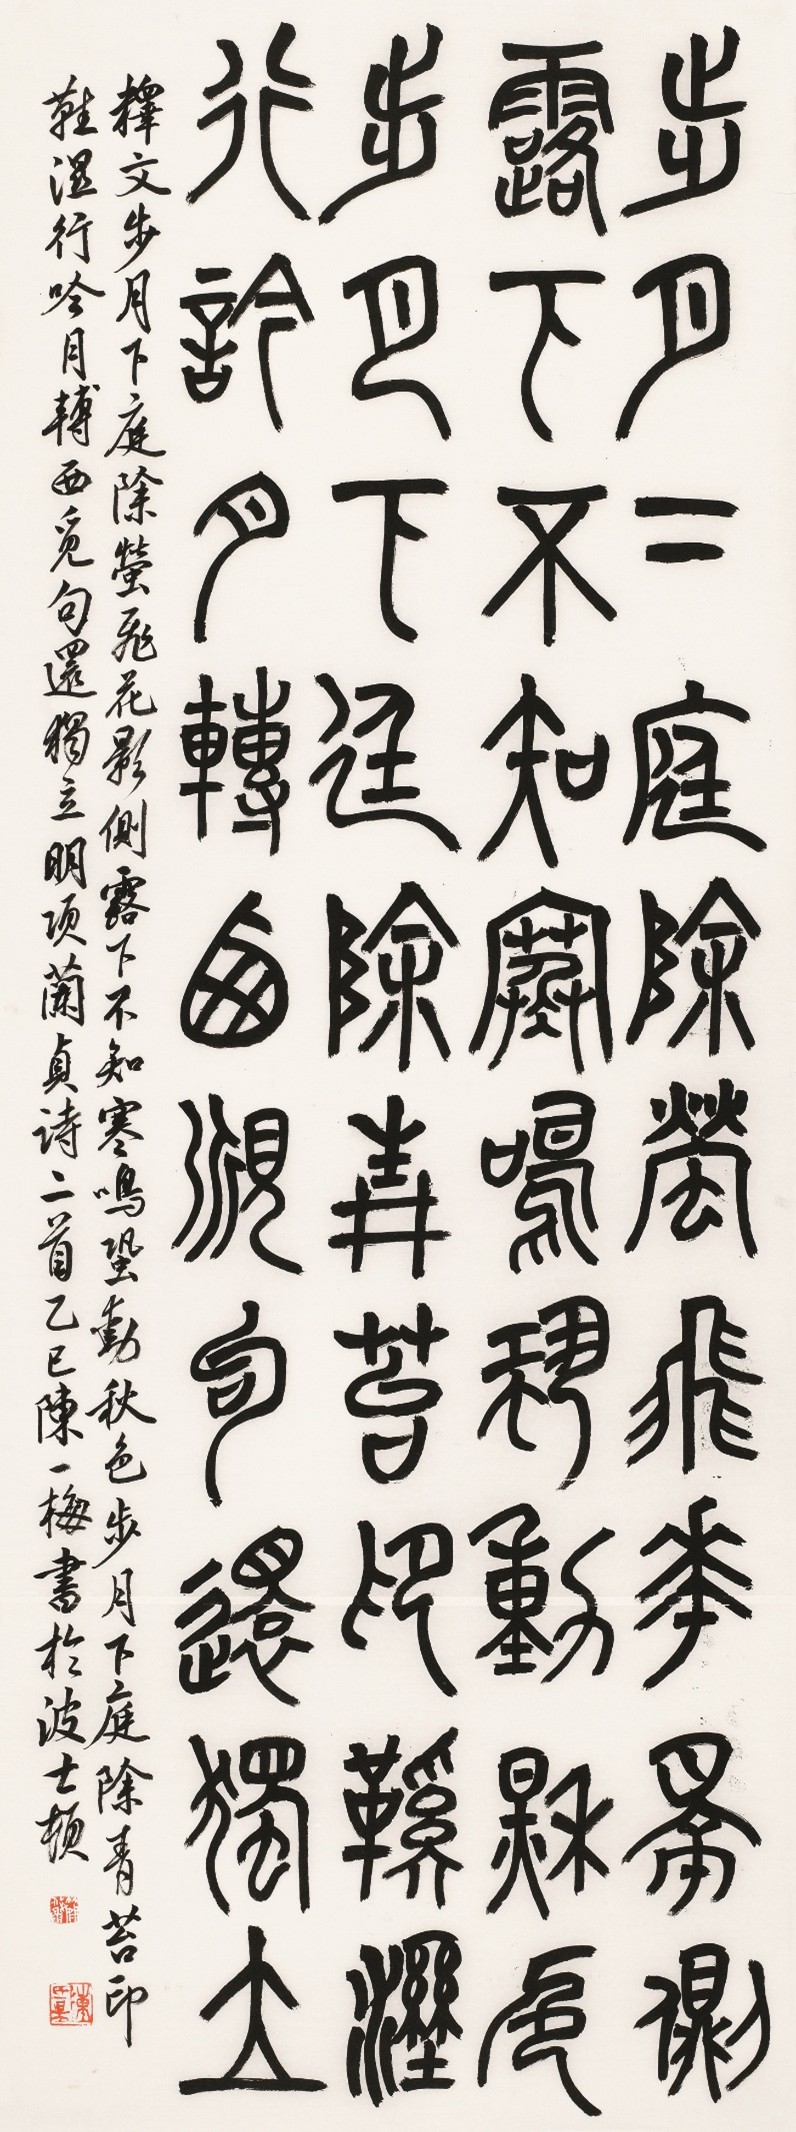 步月二庭除螢飛華景側
露下不知寒鳴蛩動秌色
步月下廷除青苔印鞵濕
行訡月轉西覓句還獨立
釋文步月下庭除螢飛花影側露下不知寒鳴蛩動秋色步月下庭除青苔印
鞋濕行吟月轉西覓句還獨立明项蘭貞诗二首乙巳陳一梅書於波士頓